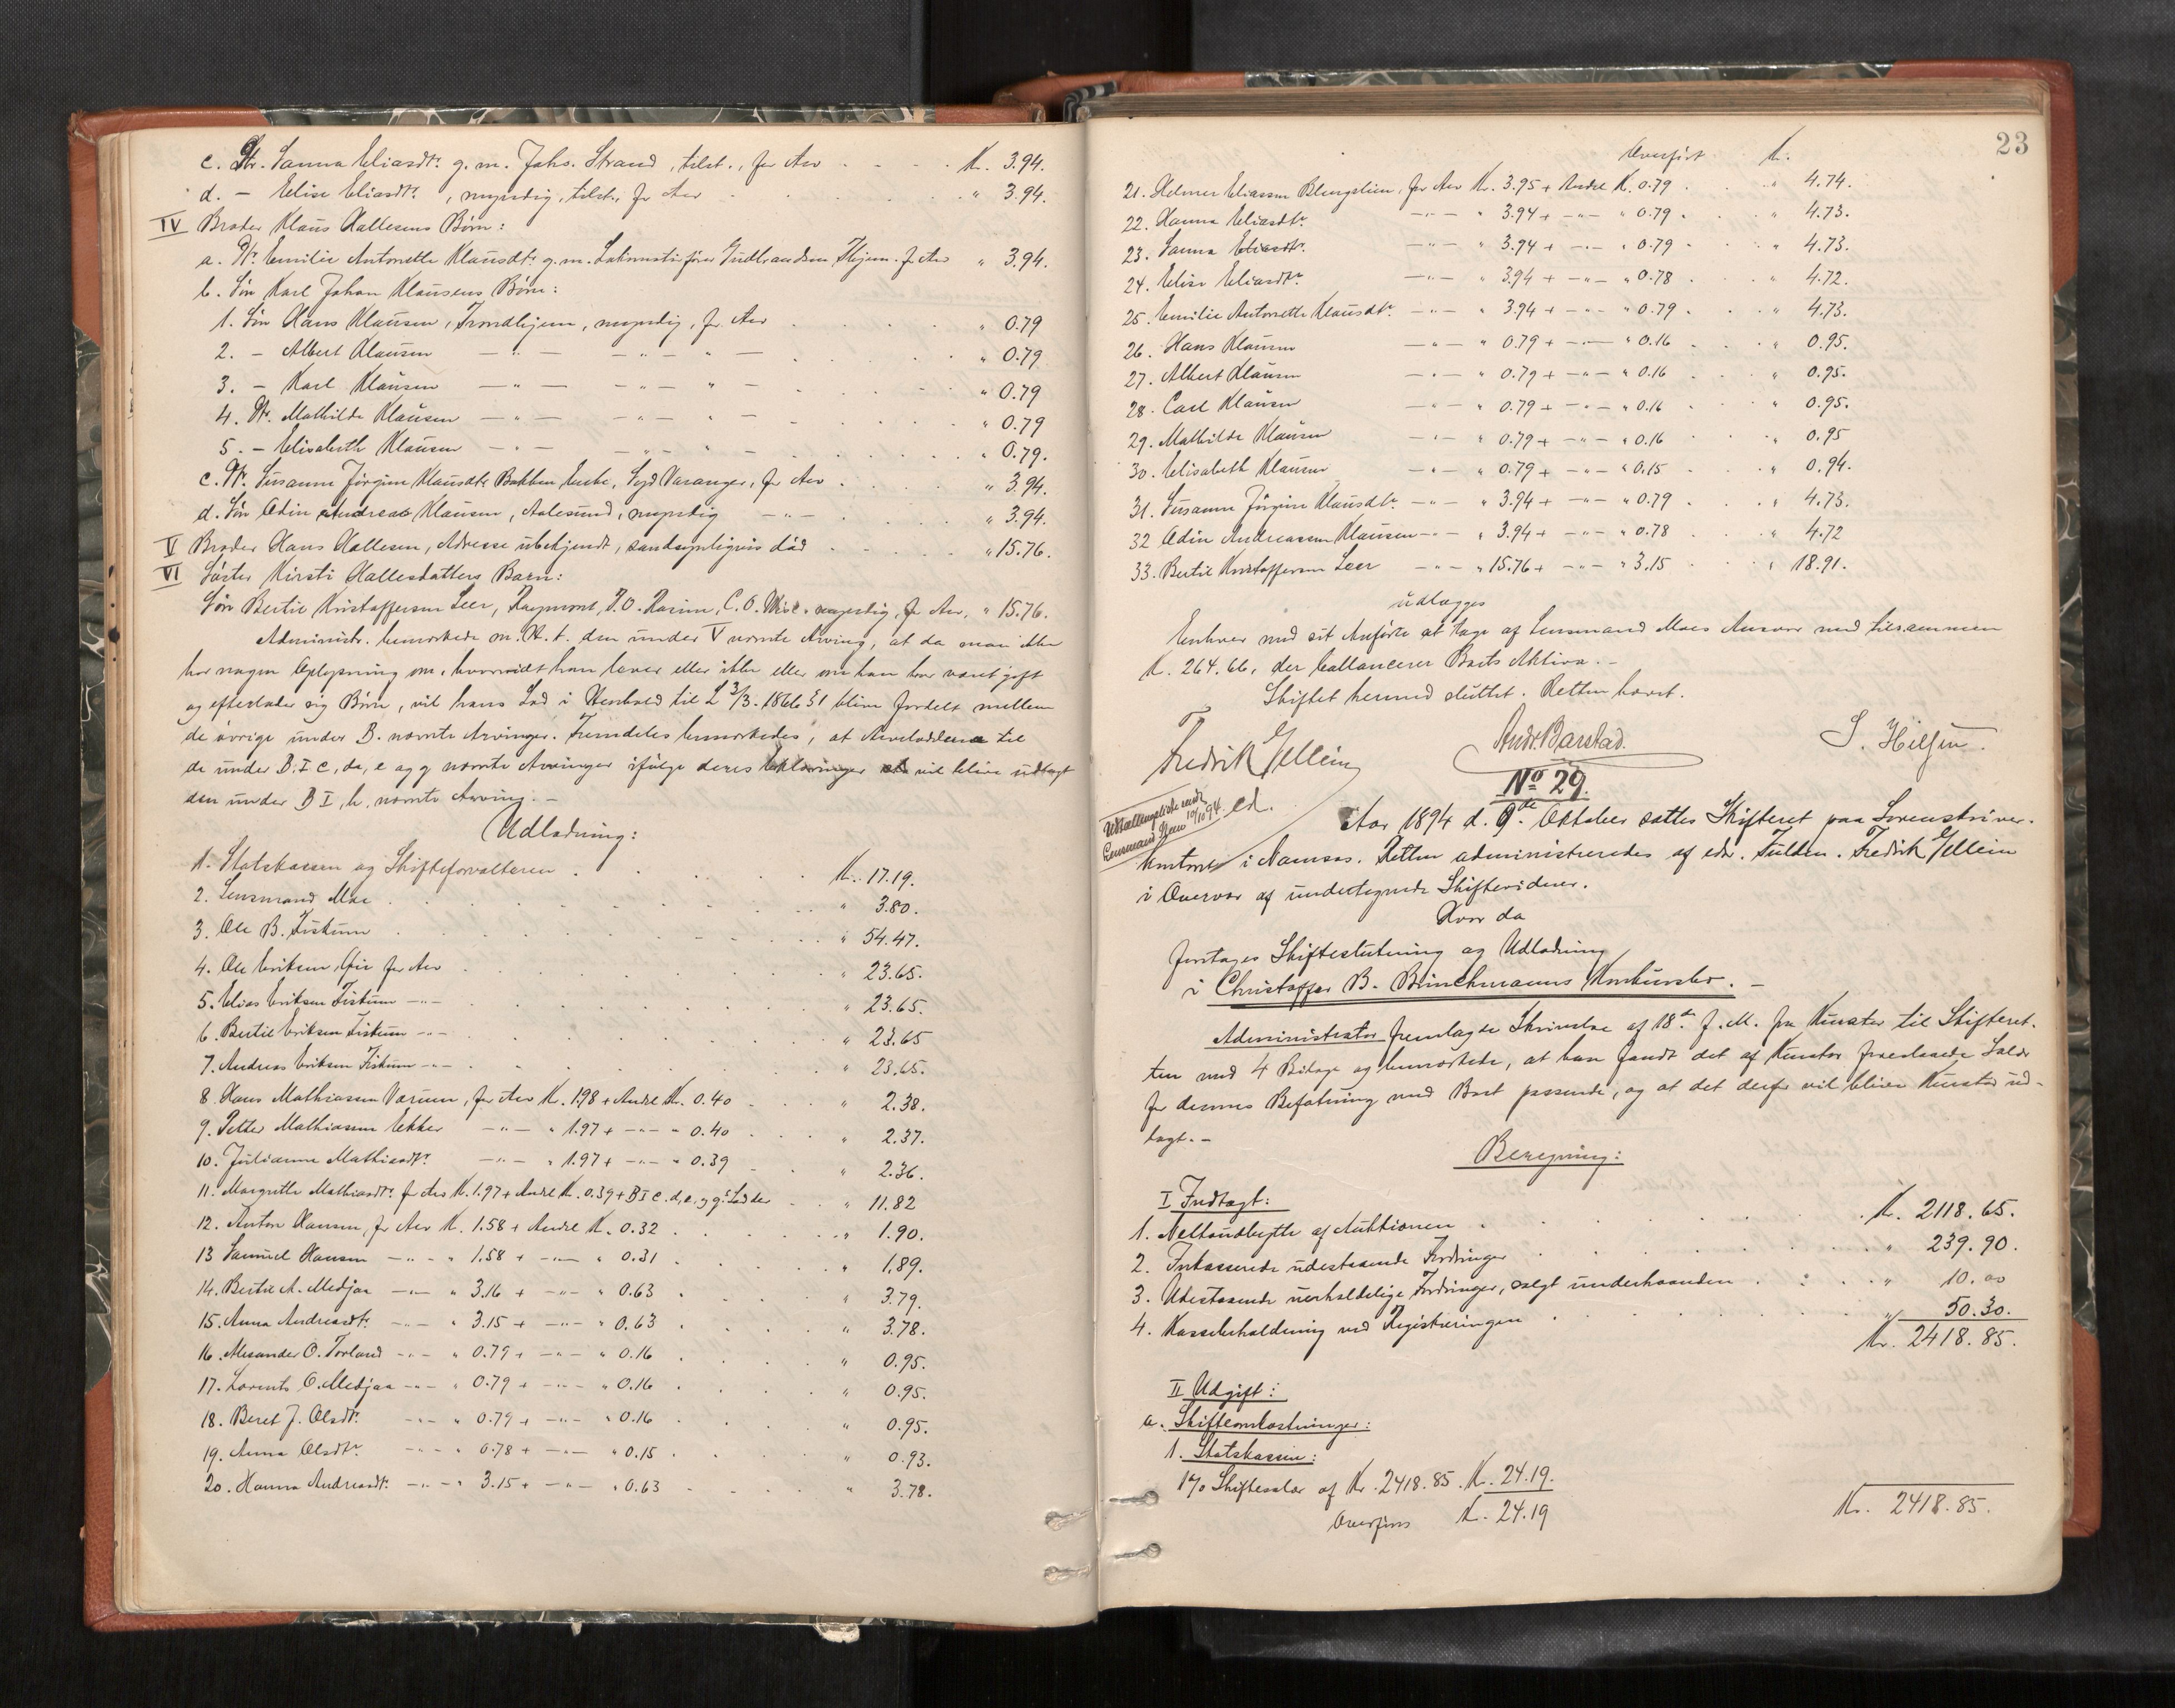 c. Dtr. Sanna Eliasdtr. g. m. Johs. Strand, tilst., for Arv . . . . K. 3.94.
d. — Elise Eliasdtr., myndig, tilst., for Arv . . . . " 3.94.
IV Broder Klaus Hallesens Børn:
a. Dtr. Emilie Antonette Klausdtr. g. m. Lokomotivfører Gudbrandsen Thjem. for Arv " 3.94.
b. Søn Karl Johan Klausens Børn:
1. Søn Hans Klausen, Trondhjem, myndig, for Arv . . . " 0.79
2. — Albert Klausen — " — — " — " — . . . " 0.79
3. — Karl Klausen — " — — " — " — . . . " 0.79
4. Dtr. Mathilde Klausen — " — — " — " — . . . " 0.79
5. — Elisabeth Klausen — " — — " — " — . . . " 0.79.
c. Dtr. Susanne Jørgine Klausdtr. Bakken Enke, Syd Varanger, for Arv . . . " 3.94.
d. Søn Odin Andreas Klausen, Aalesund, myndig — " — . . . " 3.94.
V Broder Hans Hallesen, Adresse ubekjendt, sandsynligvis død . . . " 15.76.
VI Søster Kirsti Hallesdatters Barn:
Søn Bertil Kristoffersen Leer, Raymont, P.O. Racine, C.O. Wisc. myndig, for Arv, " 15.76.
Administr. bemærkede m. H. t. den under V nævnte Arving, at da man ikke
har nogen Oplysning om, hvorvidt han lever eller ikke eller om han har været gift
og efterlader sig Børn, vil hans Lod i Henhold til L 3/3. 1866 §1 blive fordelt mellem
de øvrige under B. nævnte Arvinger. Fremdeles bemærkedes, at Arvelodderne til
de under B. I c, d, e og g nævnte Arvinger ifølge deres Erklæringer vil blive udlagt
den under B I, h. nævnte Arving. —
Udlodning:
1. Statskassen og Skifteforvalteren . . . K. 17.19.
2. Lensmand Moe . . . " 3.80.
3. Ole B. Fiskum . . . " 54.47.
4. Ole Eriksen, for Arv . . . " 23.65.
5. Elias Eriksen Fiskum — " — . . . " 23.65.
6. Bertil Eriksen Fiskum — " — . . . " 23.65
7. Andreas Eriksen Fiskum — " — . . . " 23.65.
8. Hans Mathiassen Værum, for Arv K. 1.98 + Andel K. 0.40 . . . " 2.38.
9. Petter Mathiassen Ekker — " — " 1.97 + — " — " 0.40 . . . " 2.37.
10. Julianna Mathiasdtr. — " — " 1.97 + — " — " 0.39 . . . " 2.36.
11. Margrethe Mathiasdtr. for Arv K. 1.97 + Andel K. 0.39 + B I c. d, e, og g's Lodder . . " 11.82
12. Anton Hansen, for Arv K. 1.58 + Andel K. 0.32 . . . " 1.90.
13 Samuel Hansen — " — " 1.58 + — " — " 0.31 . . . " 1.89.
14. Bertil A. Medjaa — " — " 3.16 + — " — " 0.63 . . . " 3.79.
15. Anna Andreasdtr. — " — " 3.15 + — " — " 0.63 . . . " 3.78.
16. Alexander O. Torland — " — " 0.79 + — " — " 0.16 . . . " 0.95.
17. Lorents O. Medjaa — " — " 0.79 + — " — " 0.16 . . . " 0.95.
18. Beret J. Olsdtr. — " — " 0.79 + — " — " 0.16 . . . " 0.95.
19. Anna Olsdtr. — " — " 0.78 + — " — " 0.15 . . . " 0.93.
20. Hanna Andreasdtr. — " — " 3.15 + — " — " 0.63 . . . " 3.78.
23
Overført K.
21. Helmer Eliassen Blengslien, for Arv Kr. 3.95 + Andel K. 0.79 . . " 4.74.
22. Hanna Eliasdtr. — " — " 3.94 + — " — " 0.79 . . " 4.73.
23. Sanna Eliasdtr. — " — " 3.94 + — " — " 0.79 . . " 4.73.
24. Elise Eliasdtr. — " — " 3.94 + — " — " 0.78 . . " 4.72.
25. Emilie Antonette Klausdtr. — " — " 3.94 + — " — " 0.79 . . " 4.73.
26. Hans Klausen — " — " 0.79 + — " — " 0.16 . . " 0.95.
27. Albert Klausen — " — " 0.79 + — " — " 0.16 . . " 0.95.
28. Carl Klausen — " — " 0.79 + — " — " 0.16 . . " 0.95.
29. Mathilde Klausen — " — " 0.79 + — " — " 0.16 . . " 0.95
30. Elisabeth Klausen — " — " 0.79 + — " — " 0.15 . . " 0.94.
31. Susanne Jørgine Klausdtr. — " — " 3.94 + — " — " 0.79 . . " 4.73.
32 Odin Andreassen Klausen — " — " 3.94 + — " — " 0.78 . . " 4.72
33. Bertil Kristoffersen Leer — " — " 15.76 + — " — " 3.15 . . " 18.91.
udlægges
Enhver med sit Anførte at tage af Lensmand Moes Ansvar med tilsammen
K. 264.66, der ballancerer Boets Aktiva. —
Skiftet hermed sluttet. Retten hævet.
Fredrik Gellein
Andr. Barstad.
S. Hilsen.
No 29.
Udtællingsliste sendt
Lensmand Hem 10/10 94
ed.
Aar 1894 d. 9de Oktober sattes Skifteret paa Sorenskriver-
kontoret i Namsos. Retten administreredes af edv. Fuldm. Fredrik Gellein
i Overvær af undertegnede Skiftevidner.
Hvor da
foretages Skifteslutning og Udlodning
i Christoffer B. Brinchmanns Konkursbo. —
Administrator fremlagde Skrivelse af 18de f. M. fra Kurator til Skifteret-
ten med 4 Bilage og bemærkede, at han fandt det af Kurator foreslaaede Salær
for dennes Befatning med Boet passende, og at det derfor vil blive Kurator ud-
lagt. —
Beregning:
I Indtægt:
1. Nettoudbytte af Auktionen . . . K. 2118.65.
2. Inkasserede udestaaende Fordringer . . . " 239.90.
3. Udestaaende uerholdelige Fordringer, solgt underhaanden . . . " 10.00
4. Kassebeholdning ved Registreringen . . . " 50.30.
Kr. 2418.85.
II Udgift:
a. Skifteomkostninger:
1. Statskassen:
1% Skiftesalær af Kr. 2418.85. K. 24.19.
Overføres K. 24.19
Kr. 2418.85.